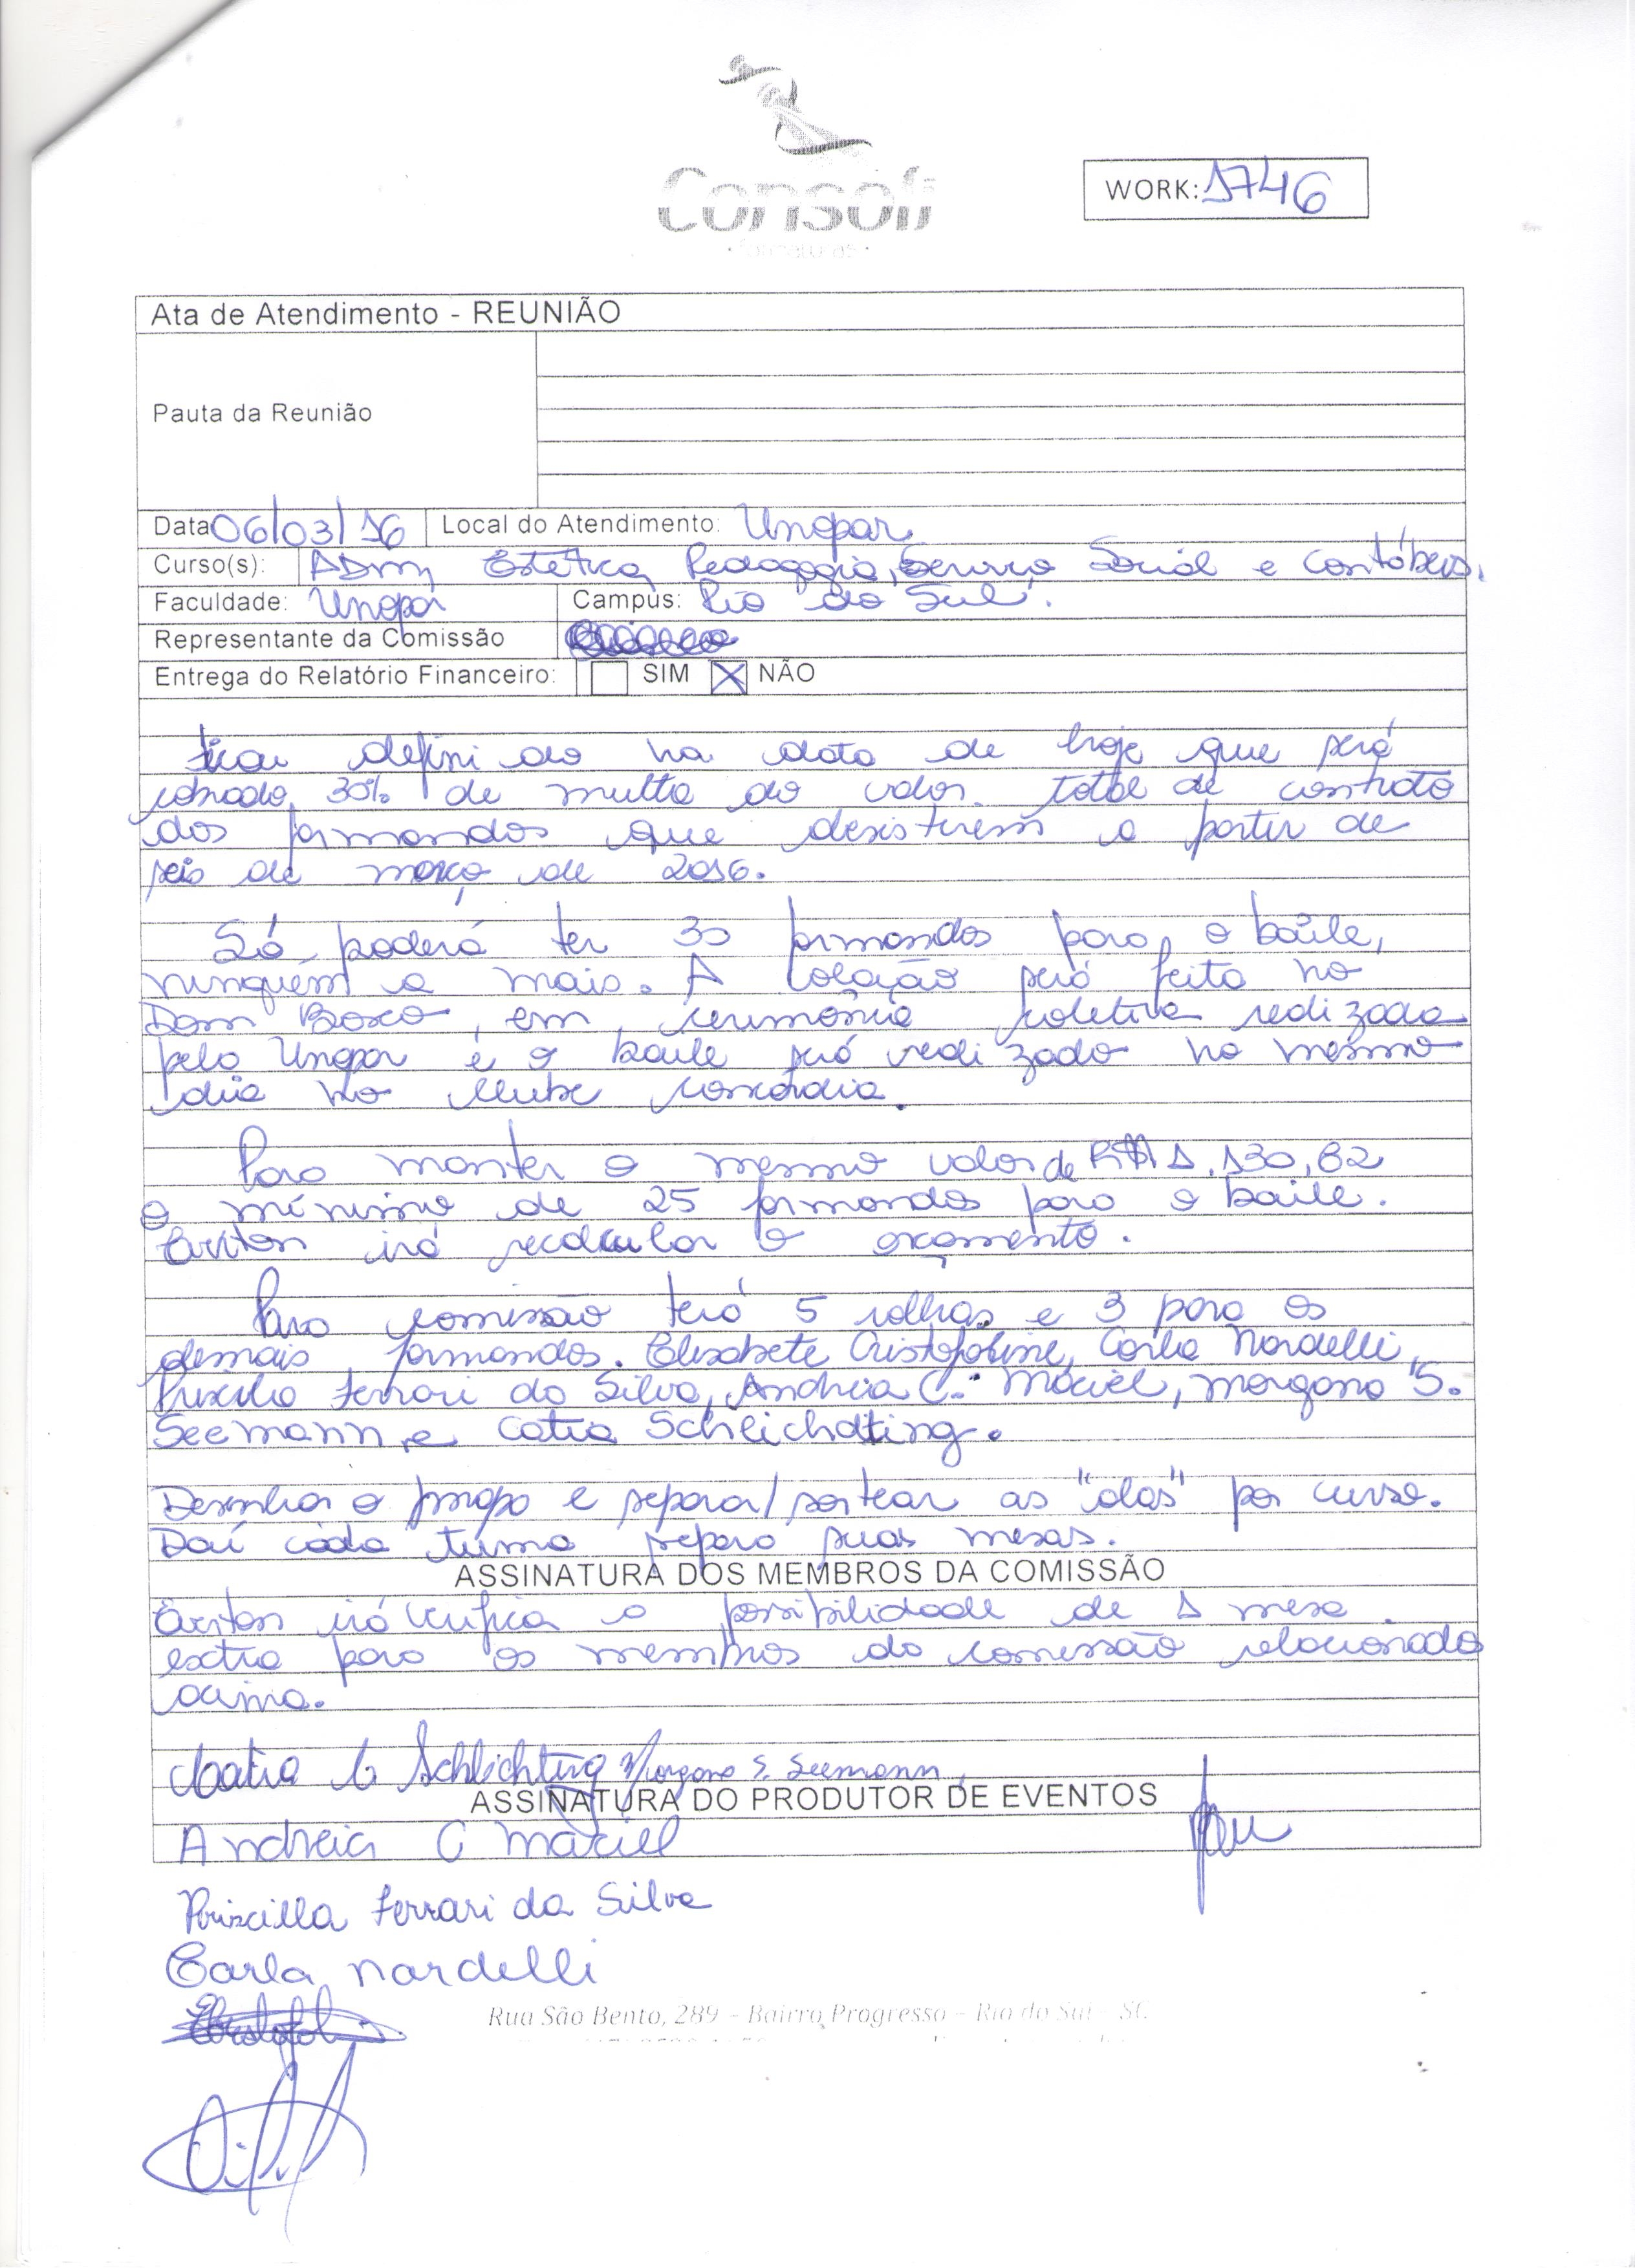 Consoli
formaturas
WORK: 1746
Ata de Atendimento - REUNIÃO
Pauta da Reunião
Data 06/03/16 Local do Atendimento: Unopar
Curso(s): ADM, Estética, Pedagogia, Serviço Social e Contábeis.
Faculdade: Unopar Campus: Rio do Sul.
Representante da Comissão
Entrega do Relatório Financeiro: SIM X NÃO
ficou definido na data de hoje que será
cobrado 30% de multa do valor total de contrato
dos formandos que desistirem a partir de
seis de março de 2016.
Só poderá ter 30 formandos para o baile,
ninguém a mais. A colação será feita no
Dom Bosco, em cerimônia coletiva realizada
pela Unopar e o baile será realizado no mesmo
dia no clube concórdia.
Para manter o mesmo valor de R$ 1.130,82
o mínimo de 25 formandos para o baile.
irá recalcular o orçamento.
Para comissão terá 5 rolhas e 3 para os
demais formandos. Elisabete Cristofolini, Carla Nardelli,
Priscila Ferrari da Silva, Andreia C. Maciel, Morgana S.
Seemann e Catia Schleichdting.
Desenhar o mapa e separar/sortear as "alas" por curso.
Daí cada turma separa suas mesas.
ASSINATURA DOS MEMBROS DA COMISSÃO
irá verifica a possibilidade de 1 mesa
extra para os membros da comissão relacionado
acima.
Catia C Schlichting Morgana S. Seemann
ASSINATURA DO PRODUTOR DE EVENTOS
Andreia C Maciel
Priscilla Ferrari da Silva
Carla Nardelli
Rua São Bento, 289 – Bairro Progresso – Rio do Sul – SC